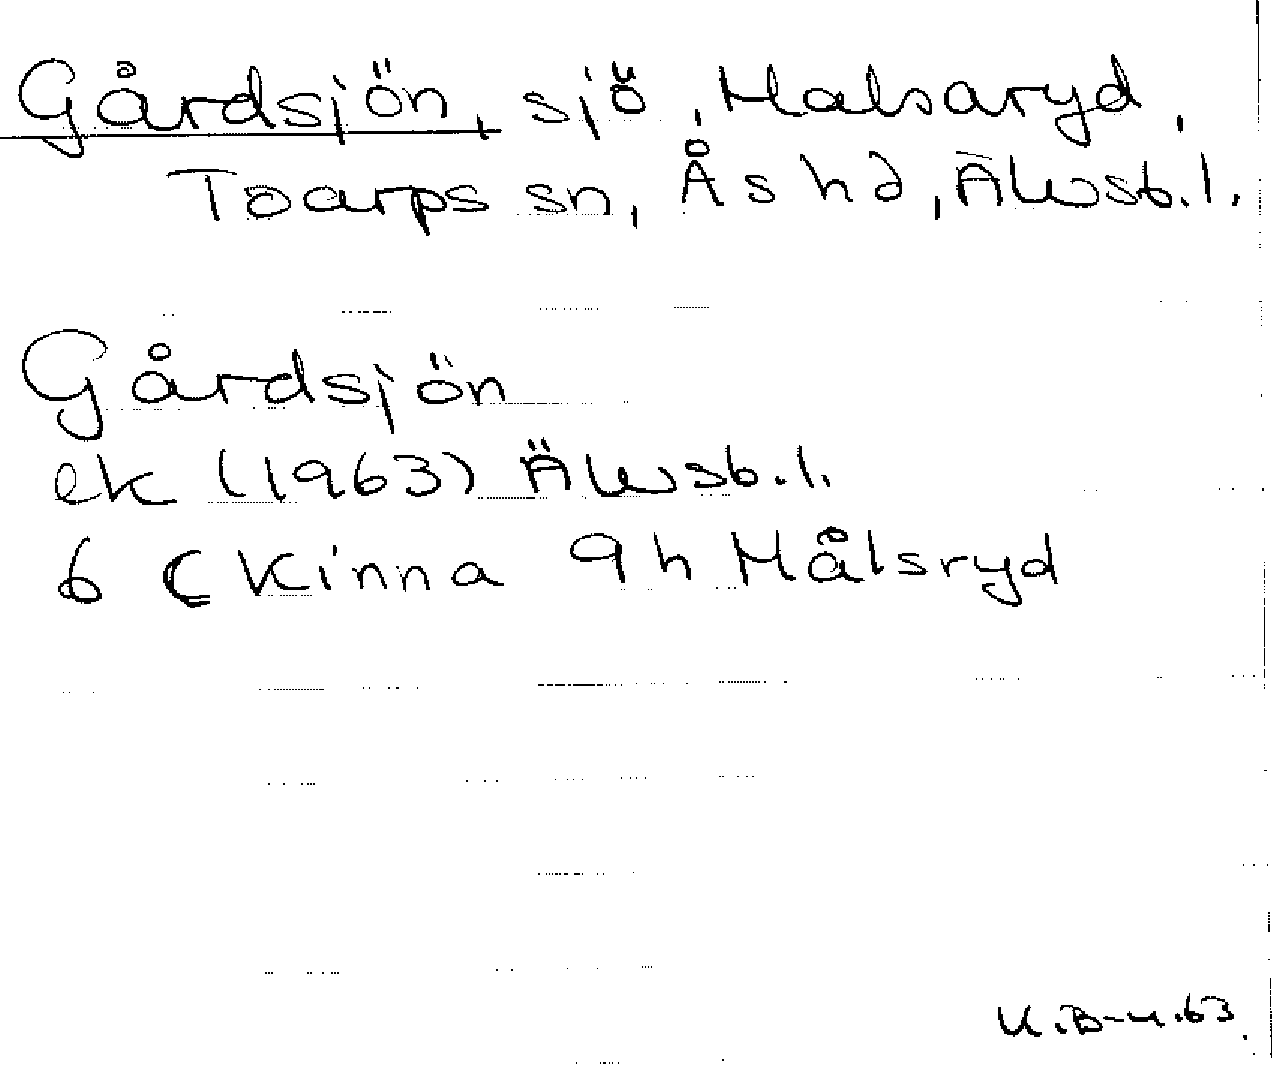 Gårdsjön, sjö, Halsaryd,
Toarps sn, Ås hd, Älvsb.l.
Gårdsjön
ek (1963) Älvsb.l.
6 C Kinna 9h Målsryd